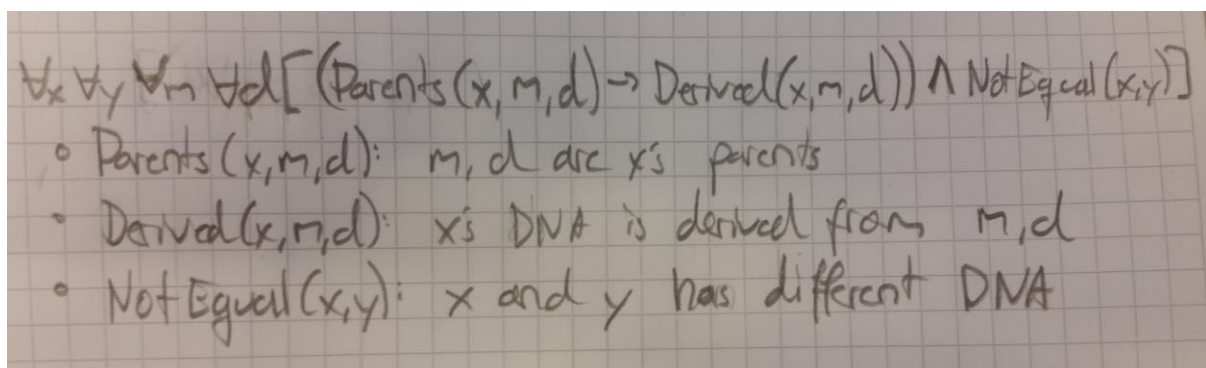 ∀x ∀y ∀m ∀d[(Parents(x,m,d)→ Derived(x,m,d)) ∧ NotEqual(x,y)]
◦ Parents(x,m,d): m,d are x's parents
• Derived(x,m,d): x's DNA is derived from m,d
◦ NotEqual(x,y): x and y has different DNA